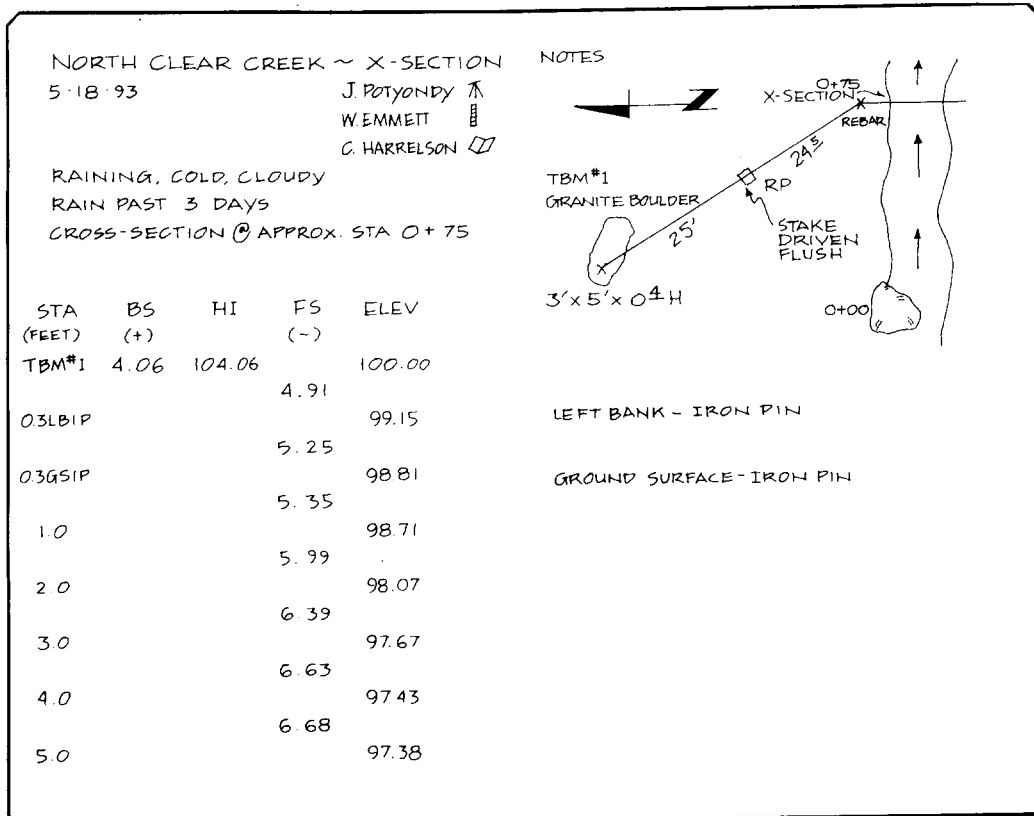 NORTH CLEAR CREEK ~ X-SECTION
5·18·93
J. POTYONDY
W. EMMETT
C. HARRELSON
RAINING, COLD, CLOUDY
RAIN PAST 3 DAYS
CROSS-SECTION @ APPROX. STA 0+75
STA BS HI FS ELEV
(FEET) (+) (-)
TBM#1 4.06 104.06 100.00
4.91
0.3LBIP 99.15
5.25
0.3GSIP 98.81
5.35
1.0 98.71
5.99
2.0 98.07
6.39
3.0 97.67
6.63
4.0 97.43
6.68
5.0 97.38
NOTES
0+75
X-SECTION
REBAR
24.5
RP
TBM#1
GRANITE BOULDER
25'
STAKE
DRIVEN
FLUSH
3'x 5'x 0.4 H
0+00
Z
LEFT BANK - IRON PIN
GROUND SURFACE - IRON PIN